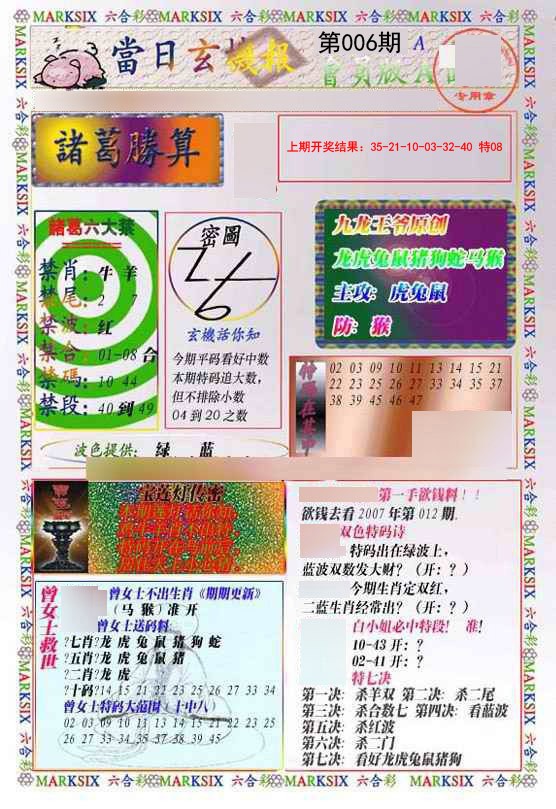 MARKSIX 六合彩 MARKSIX 六合彩 MARKSIX 六合彩 MARKSIX 六合彩
當日玄機報
第006期
A
會員版A
专用章
諸葛勝算
上期开奖结果：35-21-10-03-32-40 特08
諸葛六大禁
禁肖：牛 羊
禁尾：2 7
禁波：红
禁合：01-08合
禁碼：10 44
禁段：40到49
密圖
玄機活你知
今期平码看好中数
本期特码追大数，
但不排除小数
04到20之数
九龙王爷原创
龙虎兔鼠猪狗蛇马猴
主攻：虎兔鼠
防：猴
02 03 09 10 11 13 14 15 21
22 23 25 26 27 33 34 35 37
38 39 45 46 47
波色提供：绿 蓝
宝莲灯传密
第一手欲钱料！！
欲钱去看2007年第012期.
双色特码诗
特码出在绿波上，
蓝波双数发大财？（开：？）
今期生肖定双红，
二蓝生肖经常出？（开：？）
白小姐必中特段！ 准！
10-43 开：？
02-41 开：？
特七决
第一决：杀羊双 第二决：杀二尾
第三决：杀合数七 第四决：看蓝波
第五决：杀红波
第六决：杀二门
第七决：看好龙虎兔鼠猪狗
曾女士救世
曾女士不出生肖《期期更新》
（马 猴）准 开
曾女士送码料：
?七肖?龙 虎 兔 鼠 猪 狗 蛇
?五肖?龙 虎 兔 鼠 猪
?二肖?龙 虎
?十码?14 15 21 22 23 25 26 27 33 34
曾女士特码大范围（十中八）
02 03 09 10 11 13 14 15 21 22 23 25
26 27 33 34 35 37 38 39 45
MARKSIX 六合彩 MARKSIX 六合彩 MARKSIX 六合彩 MARKSIX 六合彩